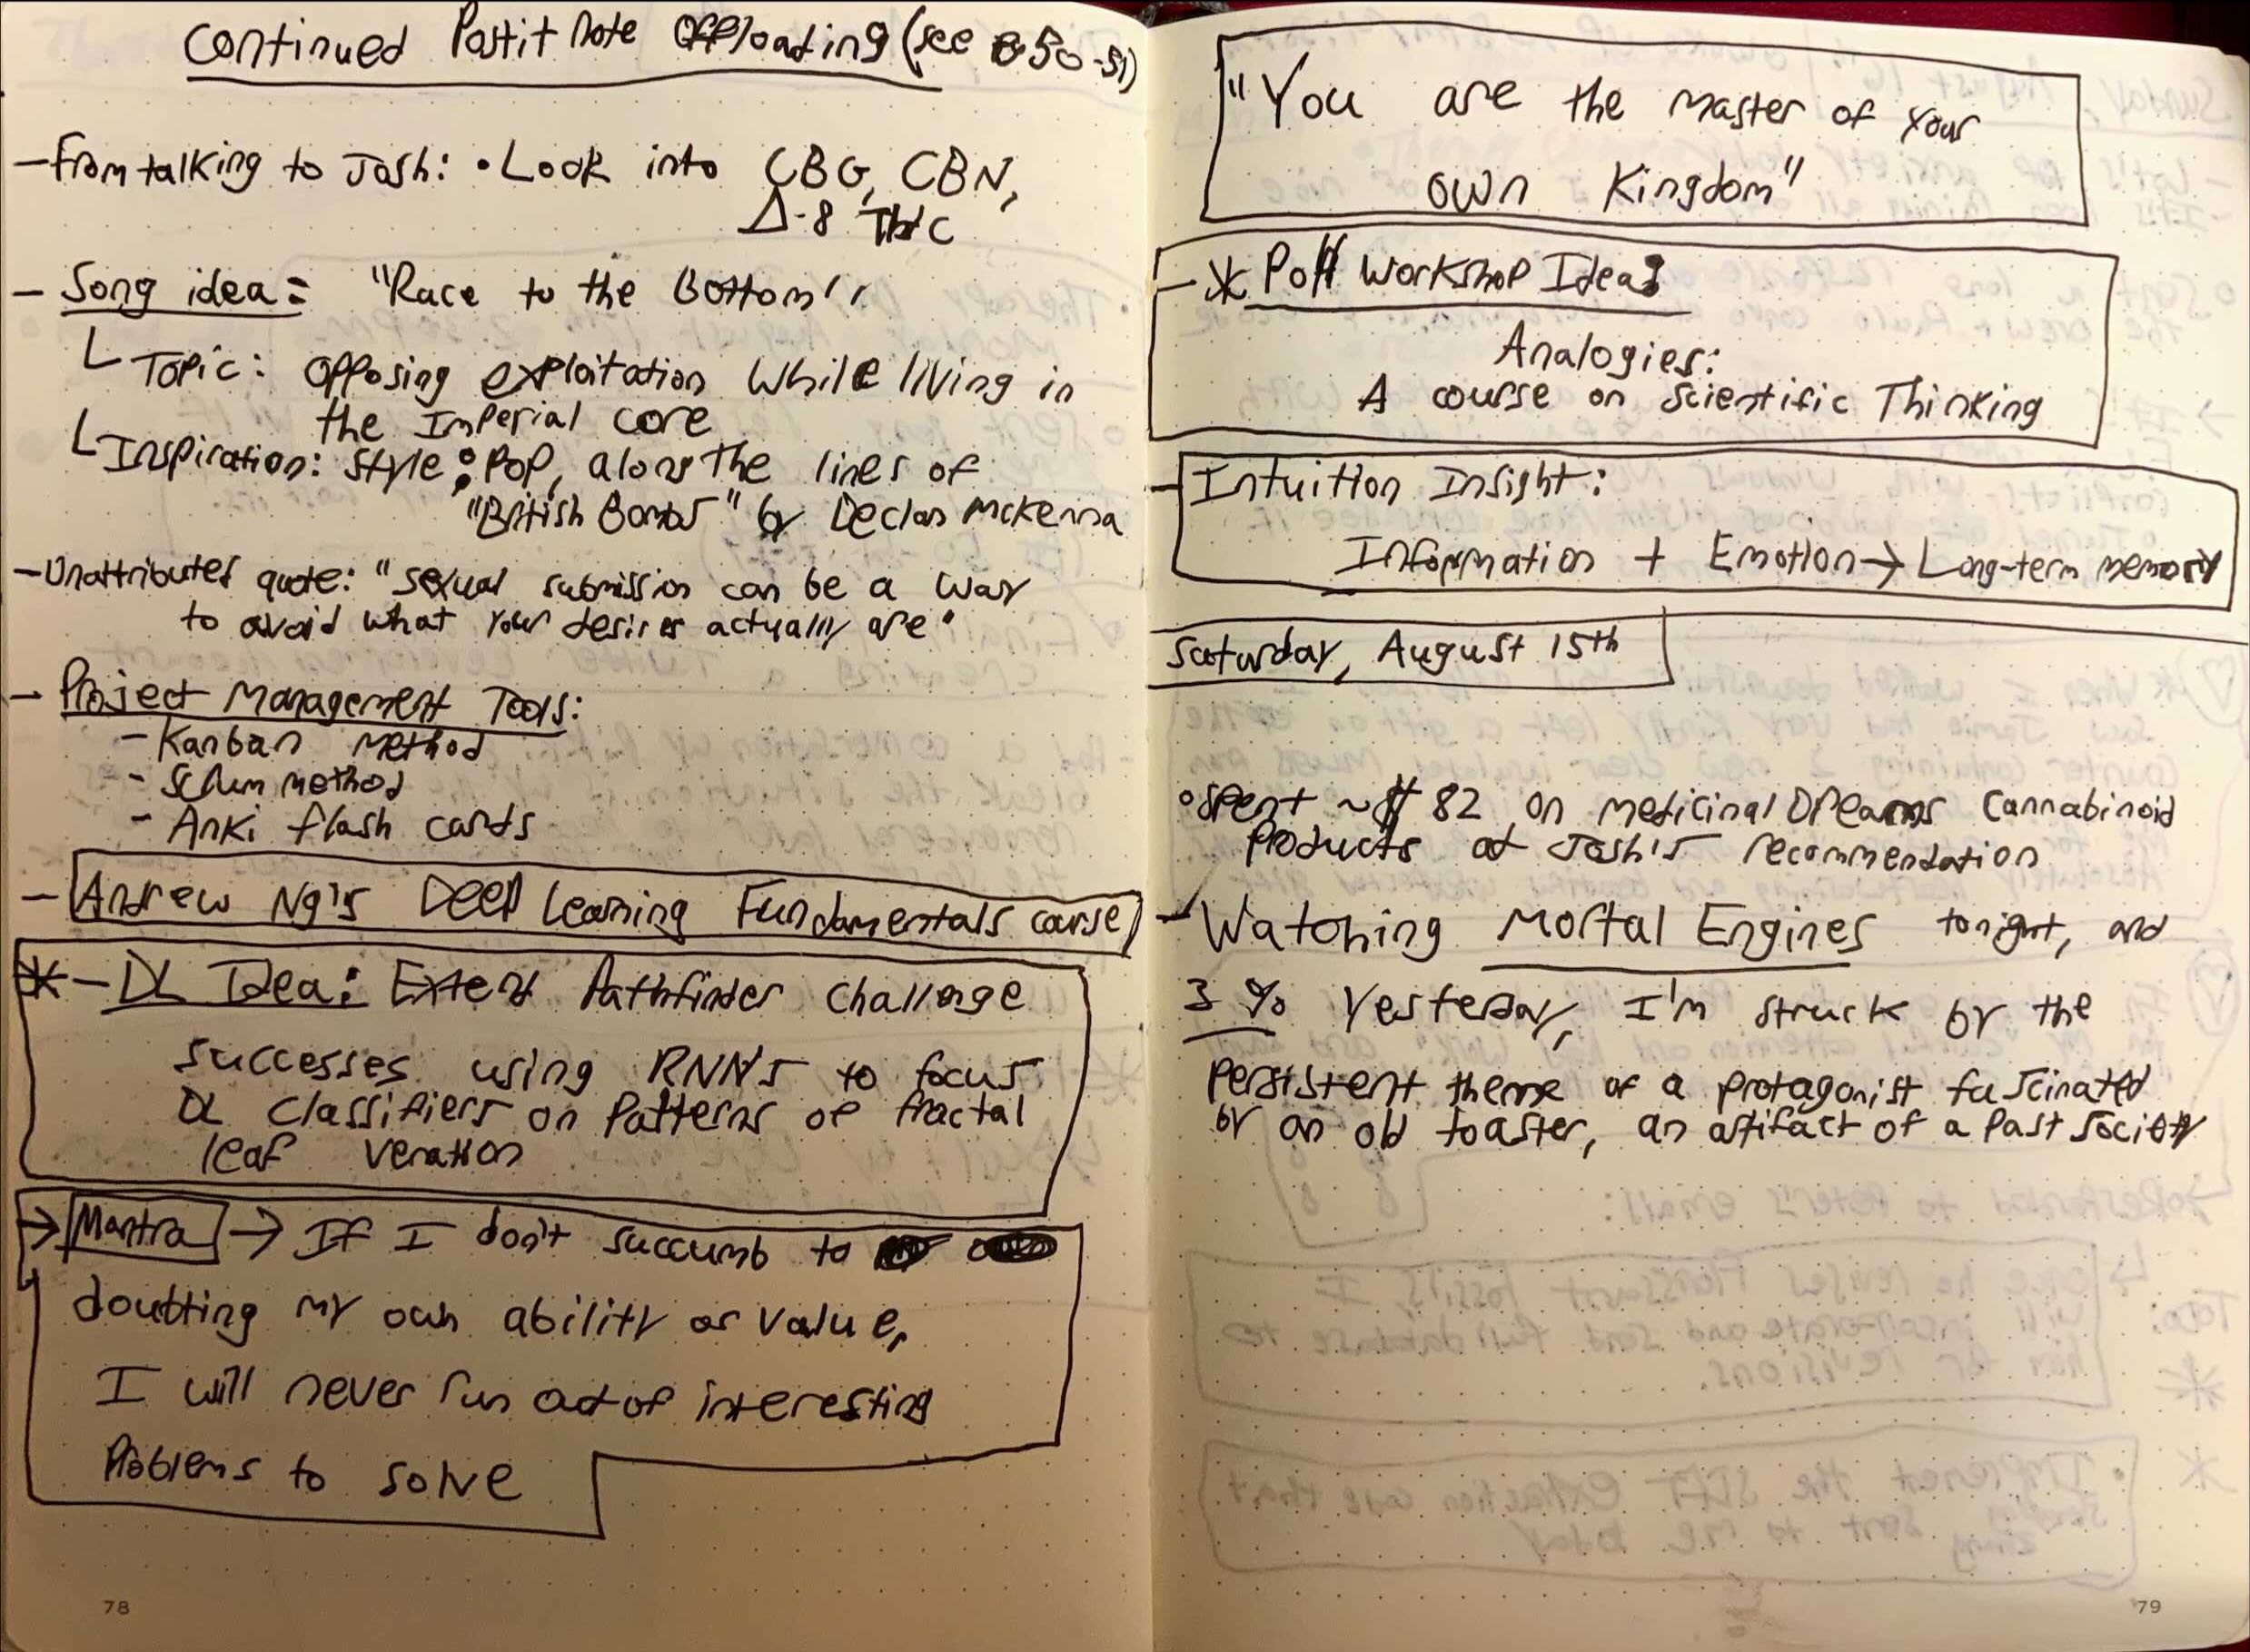 Continued Postit Note Offloading (see 50-51)
- From talking to Josh: • Look into CBG, CBN,
Δ-8 THC
- Song idea: "Race to the Bottom"
Topic: Opposing exploitation while living in
the Imperial core
Inspiration: Style: Pop, along the lines of
"British Bombs" by Declan McKenna
- Unattributed quote: "sexual submission can be a way
to avoid what your desires actually are"
- Project Management Tools:
- Kanban method
- Scrum method
- Anki flash cards
- Andrew Ng's Deep Learning Fundamentals course
* - DL Idea: Extend Pathfinder Challenge
successes using RNNs to focus
DL classifiers on patterns of fractal
leaf venation
→ Mantra → If I don't succumb to
doubting my own ability or value,
I will never run out of interesting
problems to solve
78
"You are the master of your
own Kingdom"
- * Workshop Idea:
Analogies:
A course on Scientific Thinking
- Intuition Insight:
Information + Emotion → Long-term memory
Saturday, August 15th
• Spent ~$82 on Medicinal Dreams Cannabinoid
Products at Josh's recommendation
- Watching Mortal Engines tonight, and
3% Yesterday, I'm struck by the
persistent theme of a protagonist fascinated
by an old toaster, an artifact of a past society
79